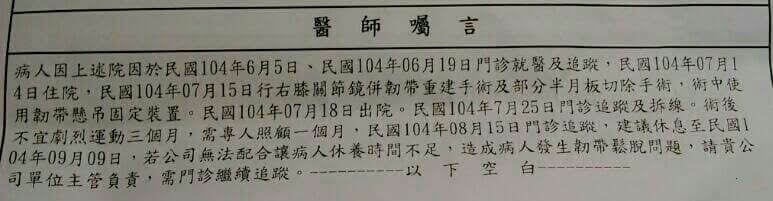 醫師囑言
病人因上述院因於民國104年6月5日、民國104年06月19日門診就醫及追蹤，民國104年07月1
4日住院，民國104年07月15日行右膝關節鏡併韌帶重建手術及部分半月板切除手術，術中使
用韌帶懸吊固定裝置。民國104年07月18日出院。民國104年7月25日門診追蹤及拆線。術後
不宜劇烈運動三個月，需專人照顧一個月，民國104年08月15日門診追蹤，建議休息至民國1
04年09月09日，若公司無法配合讓病人休養時間不足，造成病人發生韌帶鬆脫問題，請貴公
司單位主管負責，需門診繼續追蹤。----------以 下 空 白----------